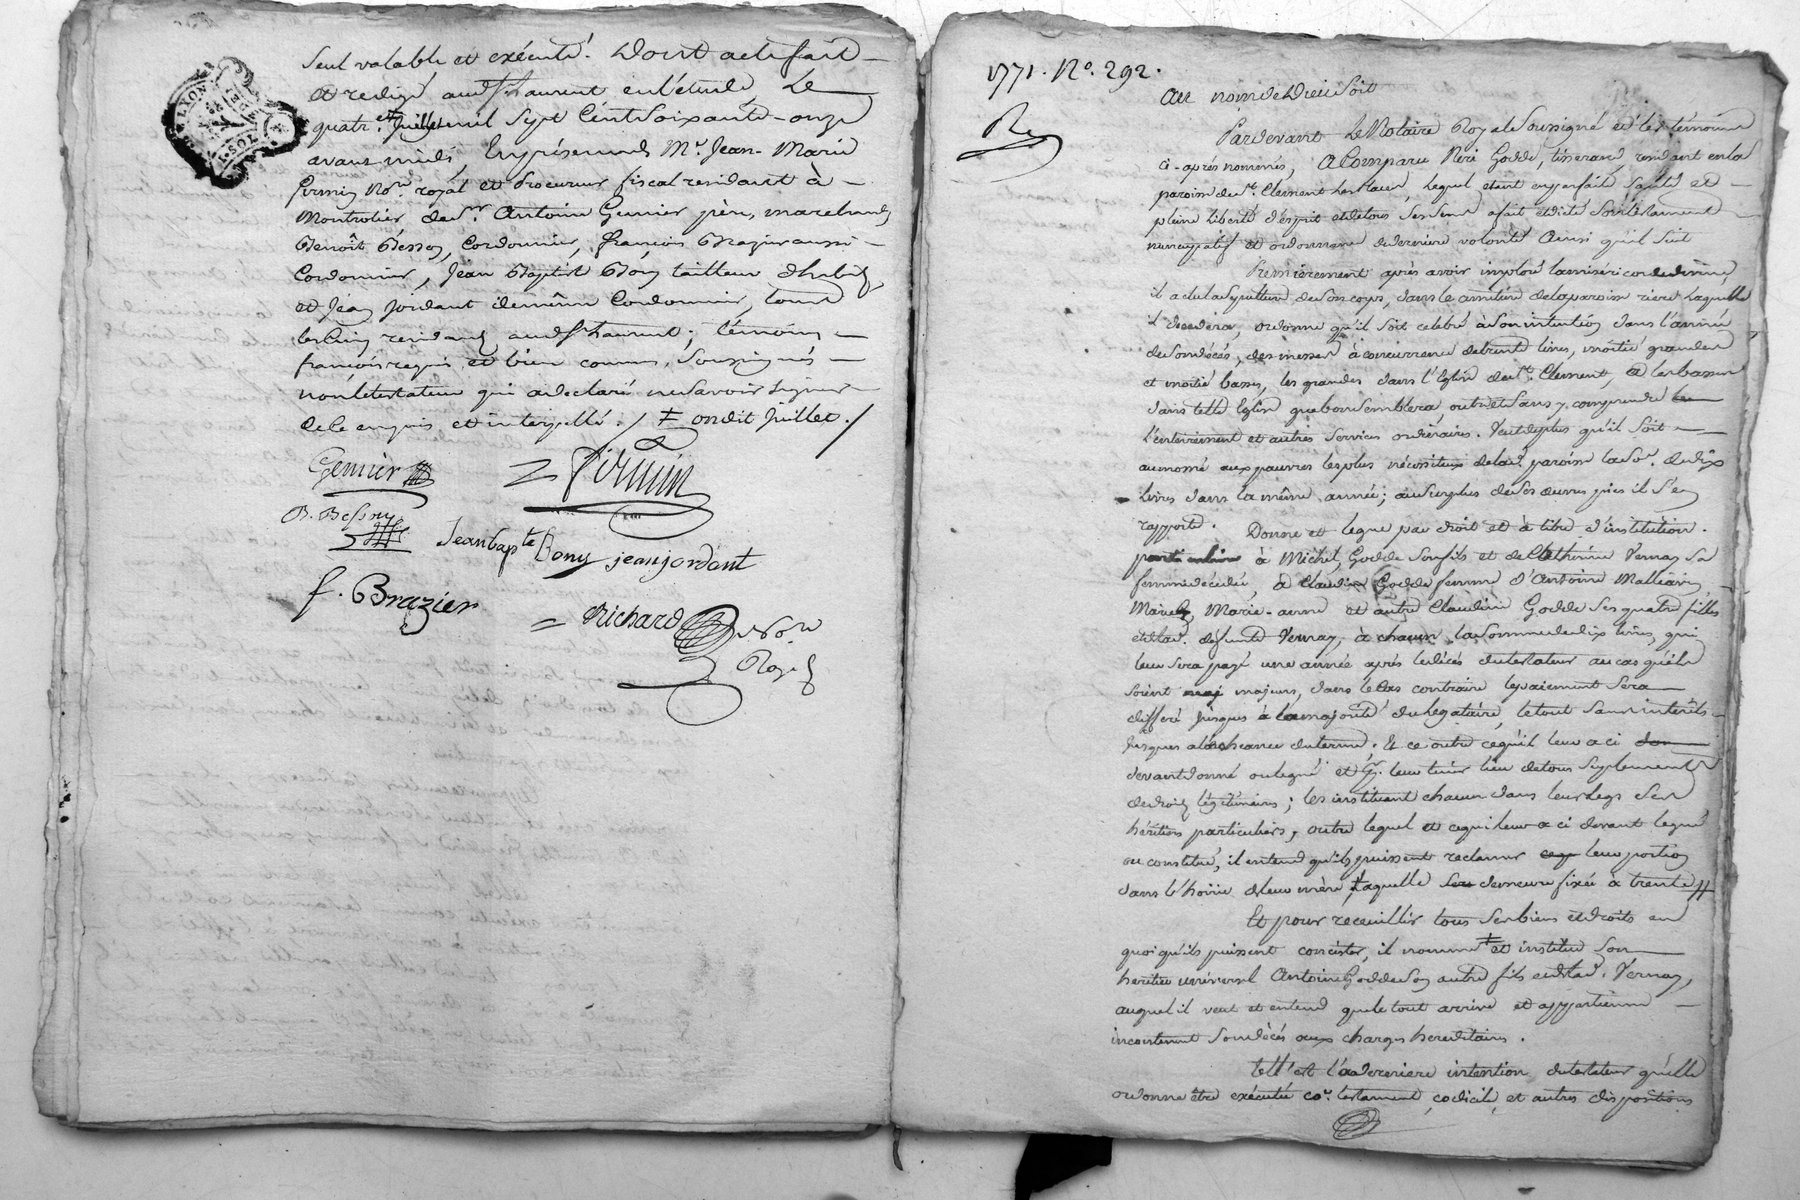 seul valable et exécuté. Dont acte fait
et redigé aud St Laurent en l'étude, Le
quatre ≠ Juillet mil Sept Cent Soixante-onze
avant midi, En présence de Mr. Jean-Marie
firmin Nore. royal et procureur fiscal residant à
Montrotier de Sr. Antoine Genier père, marchand,
Benoît Besson, Cordonnier, françois Brazier aussi
Cordonnier, Jean Baptiste Bony tailleur d'habits
et Jean Jordant de même Cordonnier, tous
les cinq residants aud St Laurent; témoins
françois requis et bien connus, Soussignés
non le testateur qui a declaré ne savoir signer
de ce enquis et interpellé. / ≠ on dit Juillet. /
Genier
Firmin
B. Besson
Jean bapte Bony jean jordant
f. Brazier
Richard Nore
Royal
LYON
1771. No. 292.
Au nom de Dieu Soit
Pardevant Le Notaire Royal Soussigné et les témoins
ci-après nommés, A Comparu Goddé, tisserand, residant en la
paroisse de St. Clement les places, Lequel etant en parfaite Santé et
pleine Liberté d'esprit et de tous Ses Sens a fait et dicté Son testament
nuncupatif et ordonnance de derniere volonté Ainsi qu'il Suit
Premièrement après avoir imploré la misericorde divine,
il a élu la Sepulture de Son corps, dans le cimitière de la paroisse riere Laquelle
il decedera, ordonne qu'il Soit celebré à Son intention dans l'année
de Son décès, des messes à concurrence de trente livres, moitié grandes
et moitié basses, les grandes dans l'Eglise de St. Clement, et les basses
dans telle Eglise que bon Semblera outre et Sans y comprendre
L'enterrement et autres Services ordinaires. Veut de plus qu'il Soit
aumoné aux pauvres les plus nécessiteux de lad. paroisse la Soe. de dix
livres dans la même année; au Surplus de Ses œuvres pies il S'en
rapporte. Donne et legue par droit et à titre d'institution
particuliere à Michel Goddé Son fils et de Catherine Vernay Sa
femme decedée, à Claudine Goddé femme d'Antoine
Marie-anne et autre Claudine Goddé Ses quatre filles
et de lad. defunte Vernay, à chacun la Somme de dix livres, qui
leur Sera payé une année après le décès du testateur au cas qu'ils
Soient majeurs, dans le Cas contraire le paiement Sera
differé Jusques à la majorité du legataire, le tout Sans intérêts
Jusques a l'échéance du terme; Et ce outre ce qu'il leur a ci
devant donné ou legué et pr. leur tenir lieu de tous Suplements
de droits légitimaires; les instituant chacun dans leur legs Ses
héritiers particuliers, outre lequel et ce qui leur a ci devant legué
ou constitué, il entend qu'ils puissent reclamer leur portion
dans l'hoirie de leur mère, laquelle demeure fixée à trente
Et pour receuillir tous Ses biens et droits en
quoi qu'ils puissent concister, il nomme ≠ et institue Son
heritier universel Antoine Goddé Son autre fils et de lad. Vernay,
auquel il veut et entend que le tout arrive et appartienne
incontinent Son décès aux charges hereditaires.
telle est l'a derniere intention du testateur qu'elle
ordonne être exécutée coe. testament, codicile, et autres dispositions